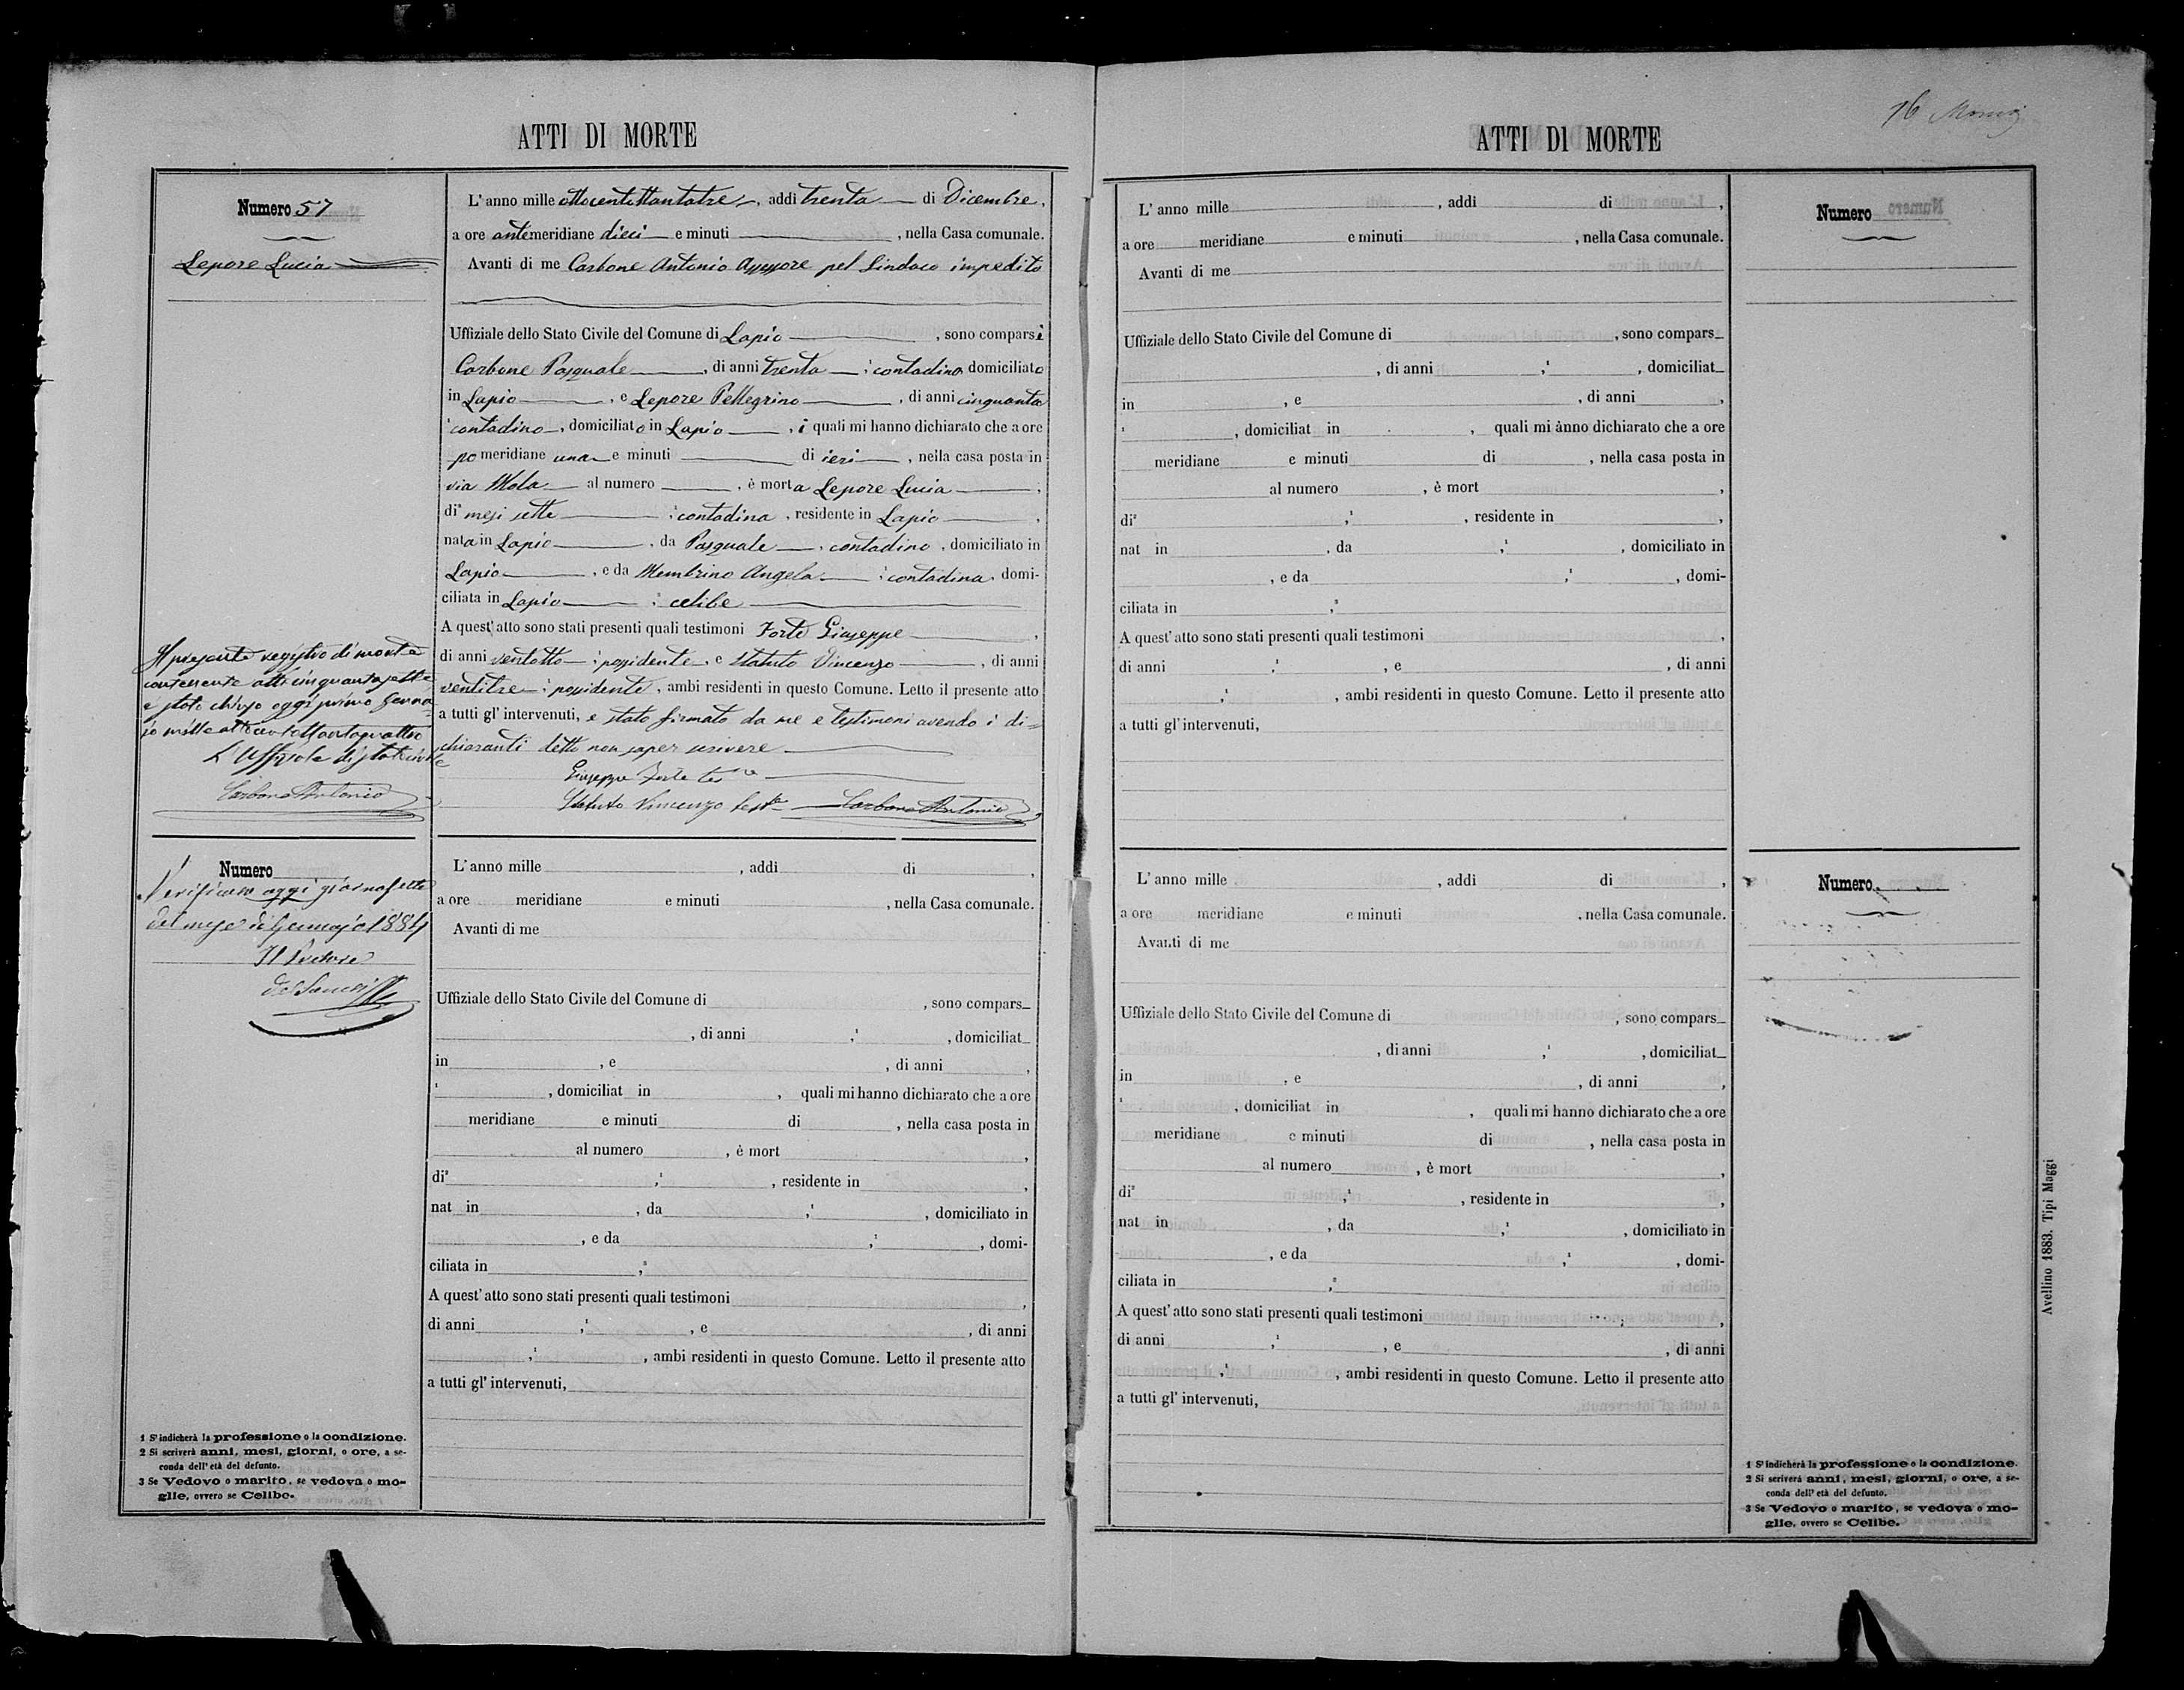 ATTI DI MORTE
Numero 57
Lepore Lucia
L'anno mille ottocentottantatre, addì trenta di Dicembre,
a ore antemeridiane dieci e minuti , nella Casa comunale.
Avanti di me Carbone Antonio Assessore pel Sindaco impedito
Uffiziale dello Stato Civile del Comune di Lapio , sono comparsi
Carbone Pasquale , di anni trenta ; contadino domiciliato
in Lapio , e Lepore Pellegrino , di anni cinquanta
contadino , domiciliato in Lapio , i quali mi hanno dichiarato che a ore
pomeridiane una e minuti di ieri , nella casa posta in
via Mola al numero , è morta Lepore Lucia ,
di² mesi sette ; contadina , residente in Lapio ,
nata in Lapio , da Pasquale , contadino , domiciliato in
Lapio , e da Membrino Angela ; contadina , domi-
ciliata in Lapio ; celibe
A quest'atto sono stati presenti quali testimoni Forte Giuseppe ,
di anni ventotto ; possidente , e Statuto Vincenzo , di anni
ventitre ; possidente , ambi residenti in questo Comune. Letto il presente atto
a tutti gl'intervenuti, e stato firmato da me e testimoni avendo i di=
chiaranti detto non saper scrivere
Giuseppe Forte
Statuto Vincenzo Carbone Antonio
Il presente registro di morte
contenente atti cinquantasette
e stato chiuso oggi primo Genna
io mille ottocentottantaquattro
L'Uffiziale di stato civile
Carbone Antonio
Numero
Verificato oggi giorno sette
del mese di Gennajo 1884
Il Pretore
L'anno mille , addì di ,
a ore meridiane e minuti , nella Casa comunale.
Avanti di me
Uffiziale dello Stato Civile del Comune di , sono compars
, di anni ,¹ , domiciliat
in , e , di anni ,
¹ , domiciliat in , quali mi hanno dichiarato che a ore
meridiane e minuti di , nella casa posta in
al numero , è mort ,
di² ,¹ , residente in ,
nat in , da ,¹ , domiciliato in
, e da ,¹ , domi-
ciliata in ,³
A quest'atto sono stati presenti quali testimoni ,
di anni ,¹ , e , di anni
,¹ , ambi residenti in questo Comune. Letto il presente atto
a tutti gl'intervenuti,
1 S'indicherà la professione o la condizione.
2 Si scriverà anni, mesi, giorni, o ore, a se-
conda dell'età del defunto.
3 Se Vedovo o marito, se vedova o mo-
glie, ovvero se Celibe.
ATTI DI MORTE
16
L'anno mille , addì di ,
a ore meridiane e minuti , nella Casa comunale.
Avanti di me
Uffiziale dello Stato Civile del Comune di , sono compars
, di anni ,¹ , domiciliat
in , e , di anni ,
¹ , domiciliat in , quali mi ànno dichiarato che a ore
meridiane e minuti di , nella casa posta in
al numero , è mort ,
di² ,¹ , residente in ,
nat in , da ,¹ , domiciliato in
, e da ,¹ , domi-
ciliata in ,³
A quest'atto sono stati presenti quali testimoni ,
di anni ,¹ , e , di anni
,¹ , ambi residenti in questo Comune. Letto il presente atto
a tutti gl'intervenuti,
Numero
L'anno mille , addì di ,
a ore meridiane e minuti , nella Casa comunale.
Avanti di me
Uffiziale dello Stato Civile del Comune di , sono compars
, di anni ,¹ , domiciliat
in , e , di anni ,
¹ , domiciliat in , quali mi hanno dichiarato che a ore
meridiane e minuti di , nella casa posta in
al numero , è mort ,
di² ,¹ , residente in ,
nat in , da ,¹ , domiciliato in
, e da ,¹ , domi-
ciliata in ,³
A quest'atto sono stati presenti quali testimoni ,
di anni ,¹ , e , di anni
,¹ , ambi residenti in questo Comune. Letto il presente atto
a tutti gl'intervenuti,
Numero
1 S'indicherà la professione o la condizione.
2 Si scriverà anni, mesi, giorni, o ore, a se-
conda dell'età del defunto.
3 Se Vedovo o marito, se vedova o mo-
glie, ovvero se Celibe.
Avellino 1883. Tipi Maggi